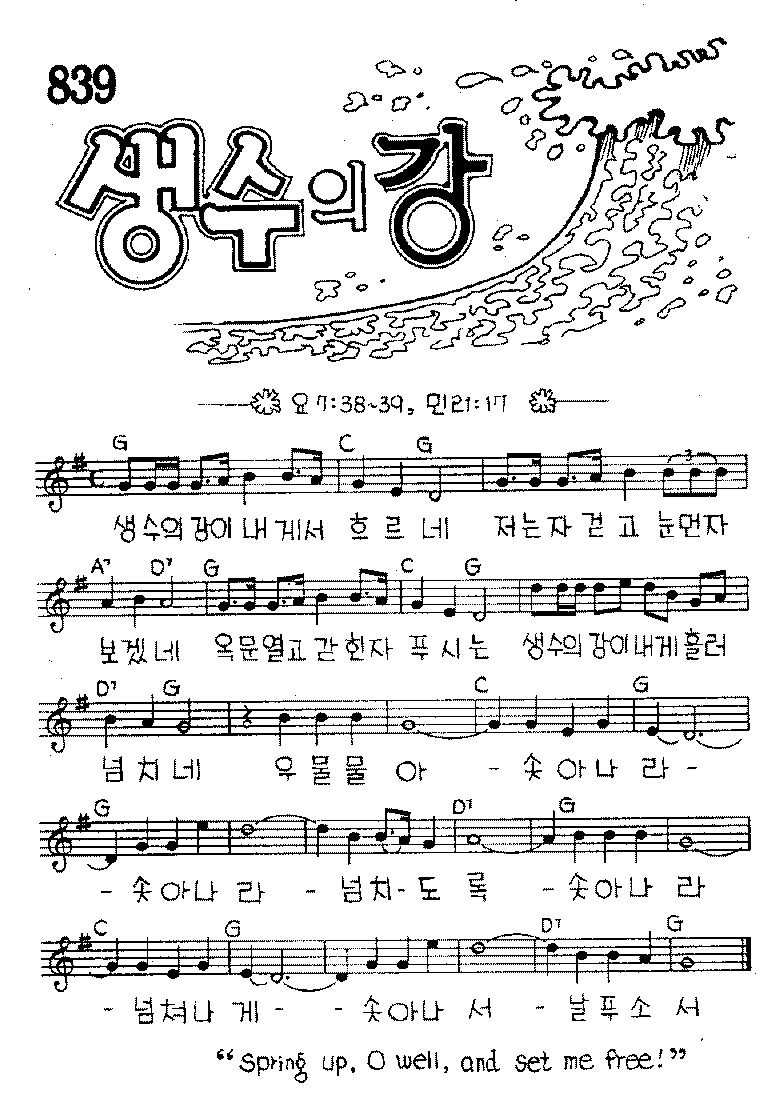 839
생수의 강
요 7:38~39, 민21:17
G C G
생수의 강이 내게서 흐르네 저는자 걷고 눈먼자
A7 D7 G C G
보겠네 옥문열고 갇힌자 푸시는 생수의 강이내게흘러
D7 G C G
넘치네 우물물아 - 솟아나라 -
G D7 G
- 솟아나라 - 넘치-도록 - 솟아나라
C G D7 G
- 넘쳐나게 - - 솟아나서 - 날푸소서
“Spring up, O well, and set me free!”